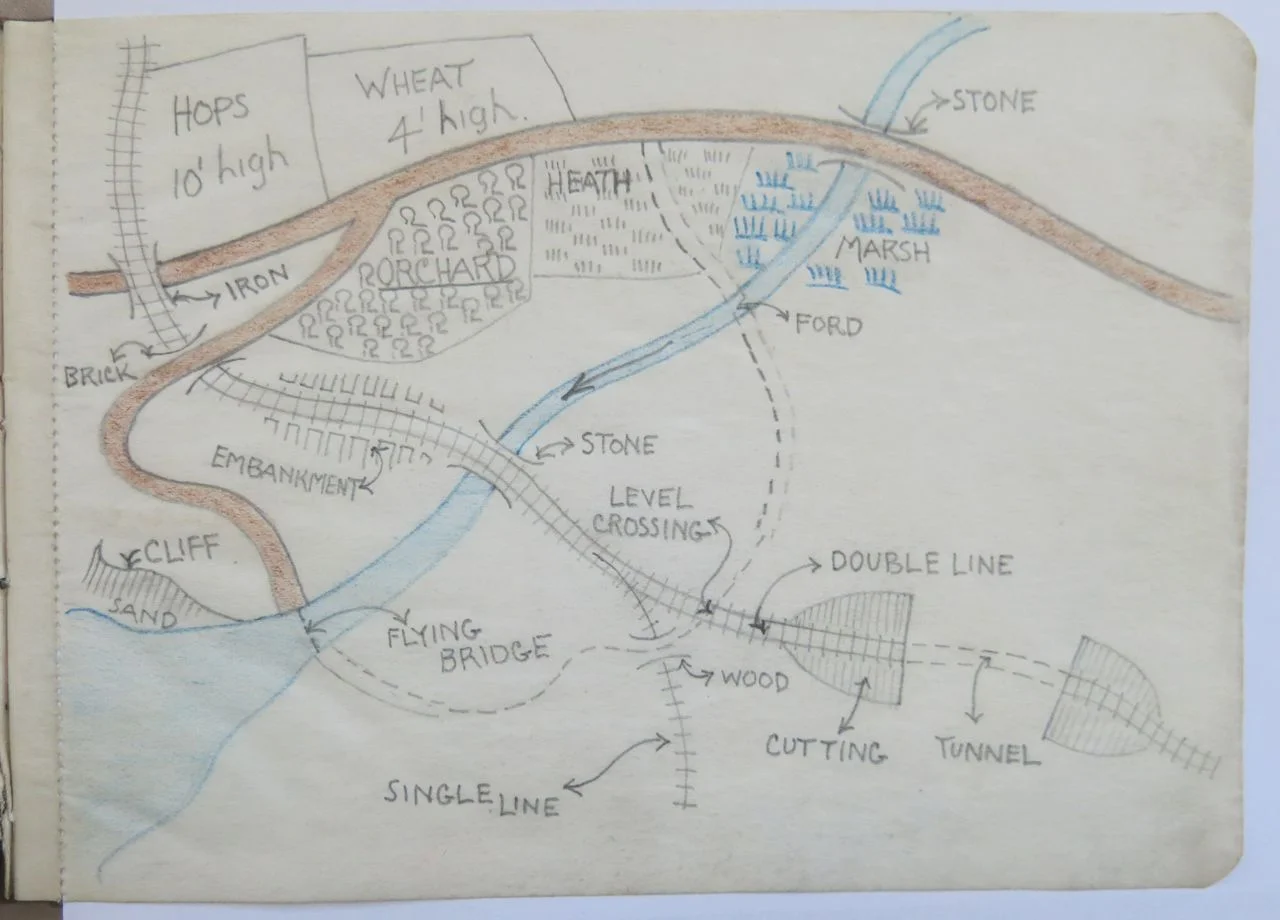 HOPS
10' high
WHEAT
4' high.
STONE
HEATH
MARSH
ORCHARD
IRON
FORD
BRICK
STONE
EMBANKMENT
LEVEL
CROSSING
CLIFF
SAND
DOUBLE LINE
FLYING
BRIDGE
WOOD
CUTTING
TUNNEL
SINGLE LINE